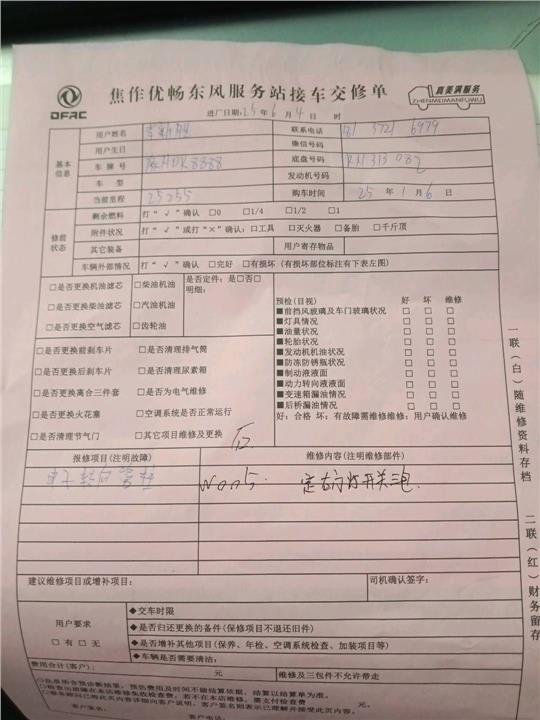 焦作优畅东风服务站接车交修单
DFAC
真美满服务
ZHENMEIMANFUWU
进厂日期:25年6月4日 时
基本信息
用户姓名
联系电话
用户生日
微信号码
车牌号
底盘号码
车型
发动机号码
当前里程 25255
购车时间 25年1月6日
修前状态
剩余燃料 打“√”确认 □0 □1/4 □1/2 □1
附件状况 打“√”或打“×”确认:口工具 □灭火器 □备胎 □千斤顶
其它装备 用户寄存物品
车辆外部情况 打“√”确认 □完好 □有损坏(有损坏部位标注有下表左图)
□是否更换机油滤芯 □柴油机油
□是否更换柴油滤芯 □汽油机油
□是否更换空气滤芯 □齿轮油
是否定件:是□否□
明细:
□是否更换前刹车片 □是否清理排气筒
□是否更换后刹车片 □是否清理尿素箱
□是否更换离合三件套 □是否为电气维修
□是否更换火花塞 □空调系统是否正常运行
□是否清理节气门 □其它项目维修及更换
预检(目视) 好 坏 维修
■前挡风玻璃及车门玻璃状况 □ □ □
■灯具情况 □ □ □
■油量状况 □ □ □
■轮胎状况 □ □ □
■发动机机油状况 □ □ □
■防冻防锈瓶状况 □ □ □
■制动液液面 □ □ □
■动力转向液液面 □ □ □
■变速箱漏油情况 □ □ □
■后桥漏油情况 □ □ □
好:合格 坏:有故障需维修维修:用户确认维修
报修项目(注明故障) 维修内容(注明维修部件)
建议维修项目或增补项目: 司机确认签字:
用户要求
□有 □无
◆交车时限
◆是否归还更换的备件(保修项目不退还旧件)
◆是否增补其他项目(保养、年检、空调系统检查、加装项目等)
◆车辆是否需要清洁:
费用合计(客户): 元 维修及三包件不允许带走
客户签名:
客户电话:
一联(白)随维修资料存档
二联(红)财务留存